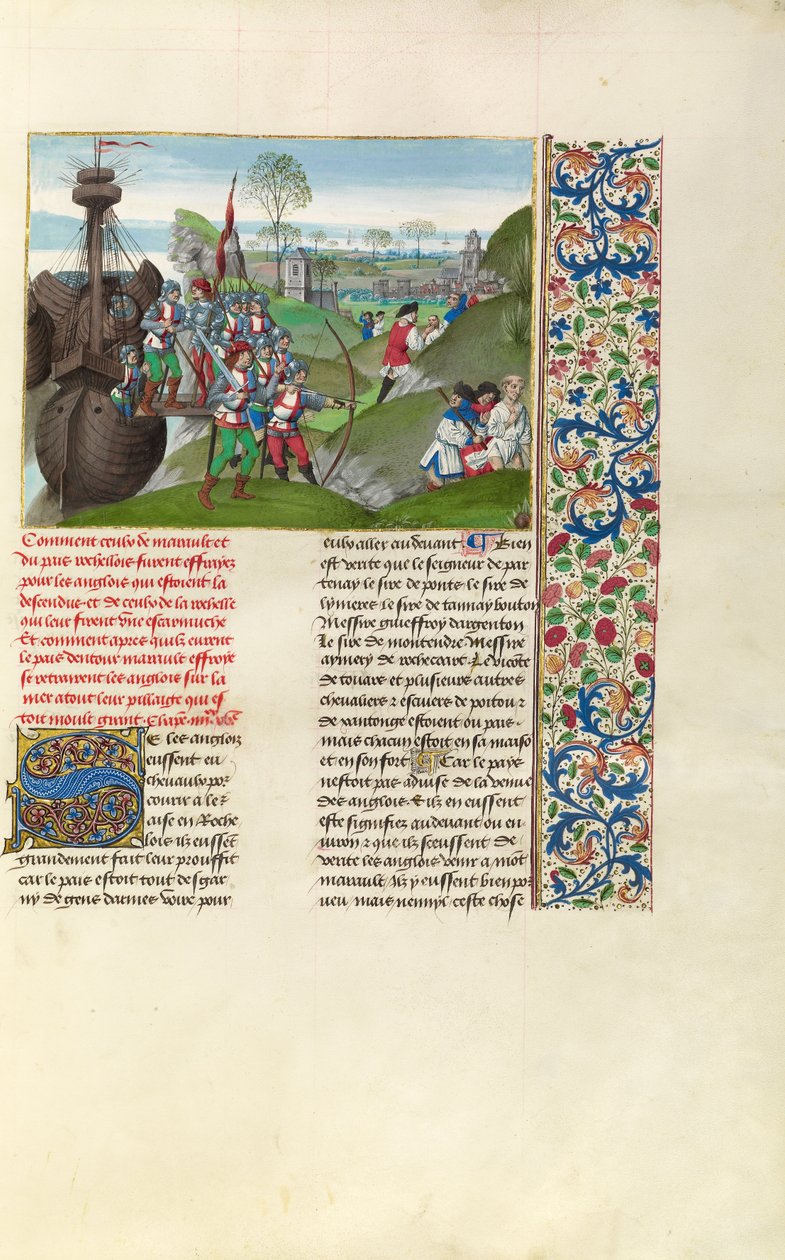 Comment ceulx de marault et
du pais rochellois furent effraiez
pour les anglois qui estoient la
descendus et de ceulx de la rochelle
qui leur firent vne escarmuche
Et comment apres quilz eurent
le pais dentour marault effroye
se retrairent les anglois sur la
mer atout leur pillaige qui es
toit moult grant
Se les anglois
eussent eu
cheuaulx por
courir a le
aise en Roche
lois ilz eussent
grandement fait leur prouffit
car le pais estoit tout desgar
ny de gens darmes voire pour
eulx aller au deuant Bien
est verite que le seigneur de par
tenay le sire de ponts le sire de
lymieres le sire de tannay bouton
Messire guieffroy dargenton
le sire de montendre Messire
aymery de rochecare Le viconte
de touars et plusieurs autres
cheualiers et escuiers de poitou et
de xantonge estoient ou pais
mais chacun estoit en sa maiso
et en son fort Car le pays
nestoit pas aduise de la venue
des anglois Et ilz en eussent
este signifiez au deuant ou en
uiron et que ilz sceussent de
verite les anglois venir a mot
marault ilz y eussent bien po
ueu mais nennyl ceste chose